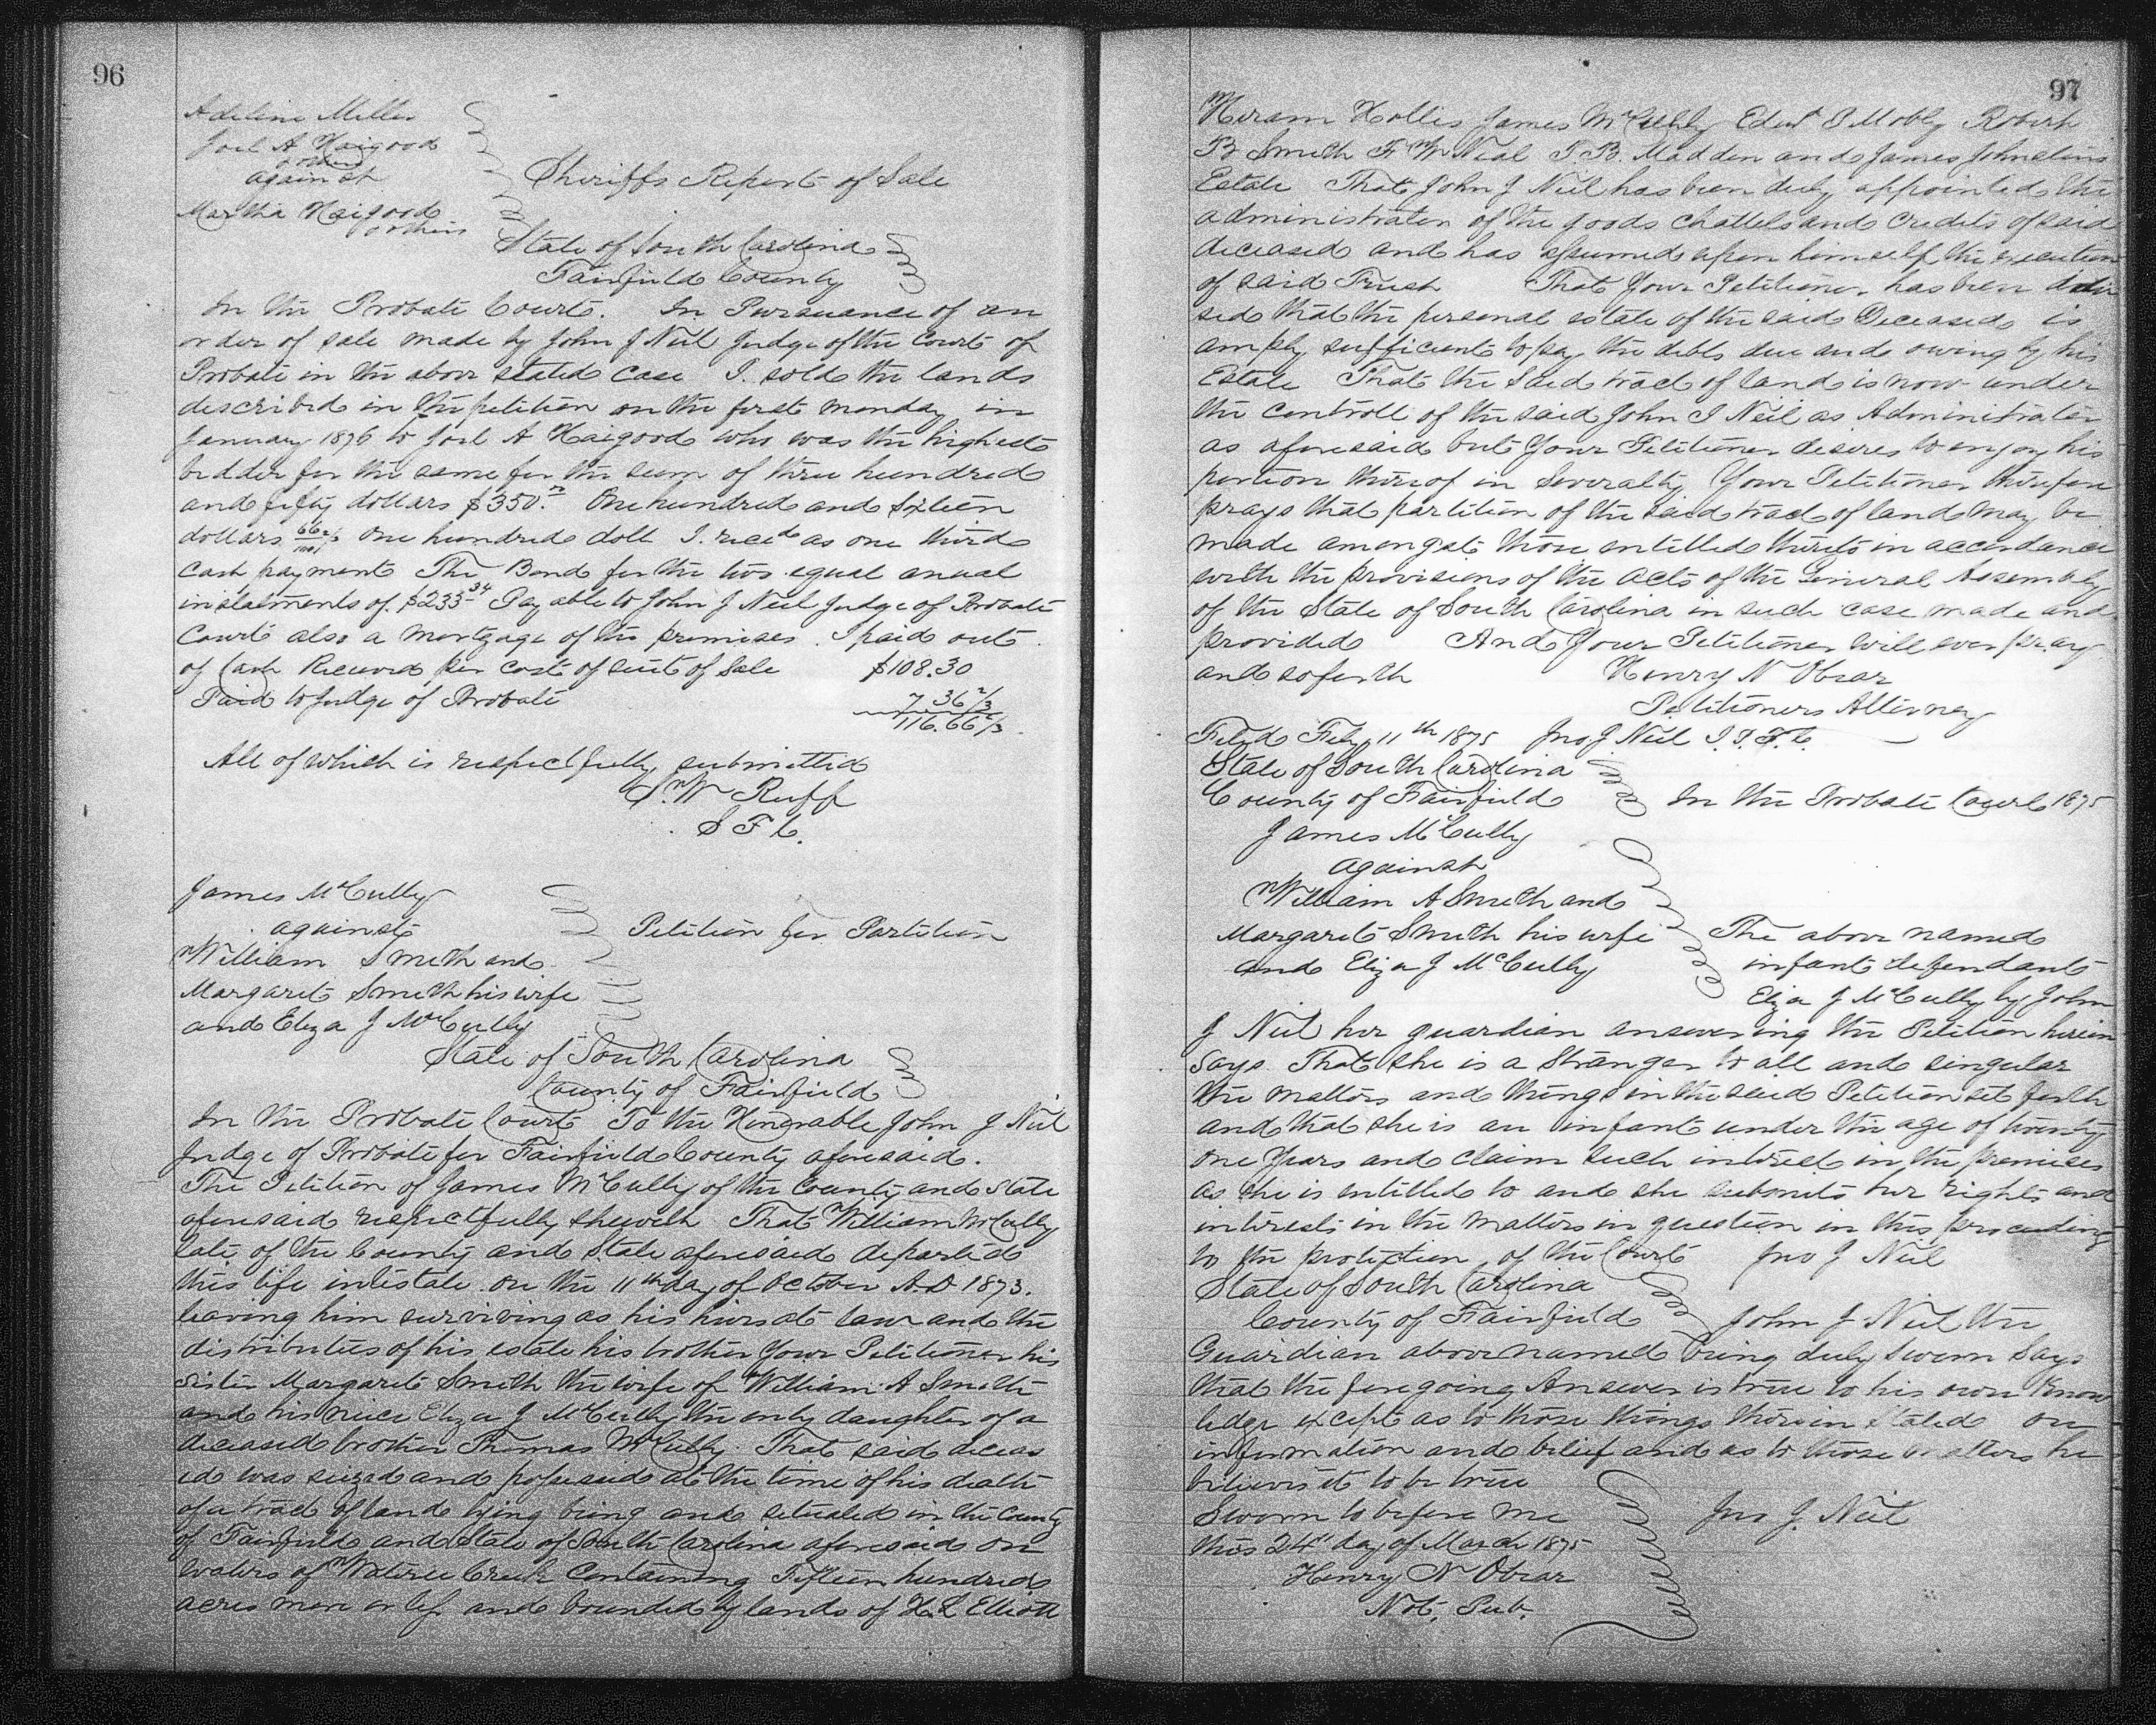 96
Adeline Miller
Joel A Haigood
& others
against
Martha Haigood
& others
Sheriffs Report of Sale
State of South Carolina
Fairfield County
In the Probate Court. In Pursuance of an
order of sale made by John J Neil Judge of the Court of
Probate in the above stated case I. sold the lands
described in the petition on the first monday in
January 1876 to Joel A Haigood who was the highest
bidder for the same for the sum of three hundred
and fifty dollars $350. One hundred and sixteen
dollars 66⅔/100 one hundred doll I. recd as one third
cash payment The Bond for the two equal anual
instalments of $233 34 Payable to John J Neil Judge of Probate
Court also a Mortgage of the premises. I paid out
of Cash Received per cost of suit of Sale $108.30
Paid to Judge of Probate 7 36⅔
116.66⅔
All of which is respectfully submitted
S. W Ruff
S F C.
James McCully
against
William Smith and
Margaret Smith his wife
and Eliza J McCully
Petition for Partition
State of South Carolina
County of Fairfield
In the Probate Court To the Honorable John J Neil
Judge of Probate for Fairfield County aforesaid.
The Petition of James McCully of the County and State
aforesaid respectfully sheweth That William McCully
late of the County and State aforesaid departed
this life intestate on the 11th day of October A.D 1873.
leaving him surviving as his hiers at law and the
distributees of his estate his brother Your Petitioner his
sister Margaret Smith the wife of William A Smith
and his neice Eliza J McCully the only daughter of a
deceased brother Thomas McCully. That said deceas
ed was seized and possessed at the time of his death
of a tract of land lying being and situated in the County
of Fairfield and State of South Carolina aforesaid on
waters of Wateree Creek Containing Fifteen hundred
acres more or less and bounded by lands of H L Elliott
97
Hiram Hollis James McCully Edwd S Mobly Robert
B Smith F W Neal T. B. Madden and James Johnstins
Estate That John J Neil has been duly appointed the
administrator of the goods Chattels and Credits of said
deceased and has assumed upon himself the execution
of said Trust That Your Petitioner has been
sed that the personal estate of the said Deceased is
amply sufficient to pay the debts due and owing by his
Estate That the said tract of land is now under
the controll of the said John J Neil as Administrator
as aforesaid but Your Petitioner desires to enjoy his
portion thereof in Severalty Your Petitioner therefore
prays that partition of the said tract of land may be
made amongst those entitled thereto in accordance
with the provisions of the acts of the General Assembly
of the State of South Carolina in such case made and
provided And Your Petitioner will ever pray
and soforth Henry N Obear
Petitioners Attorney
Filed Feby 11th 1875 Jno J Neil J. P. F. C.
State of South Carolina
County of Fairfield In the Probate Court 1875
James McCully
against
William A Smith and
Margaret Smith his wife
and Eliza J McCully
The above named
infant defendant
Eliza J McCully by John
J Neil her guardian answering the Petition herein
says That she is a Stranger to all and singular
the matters and things in the said Petition set forth
and that she is an infant under the age of twenty
one Years and claim such interest in the premises
as she is entitled to and she submits her rights and
interests in the matters in question in this proceeding
to the protection of the Court Jno J Neil
State of South Carolina
County of Fairfield John J Neil the
Guardian above named being duly sworn Says
that the foregoing Answer is true to his own Know
ledge except as to those things therein Stated on
information and belief and as to those matters he
believes it to be true
Sworn to before me Jno J. Neil
this 24th day of March 1875
Henry N Obear
Not. Pub.